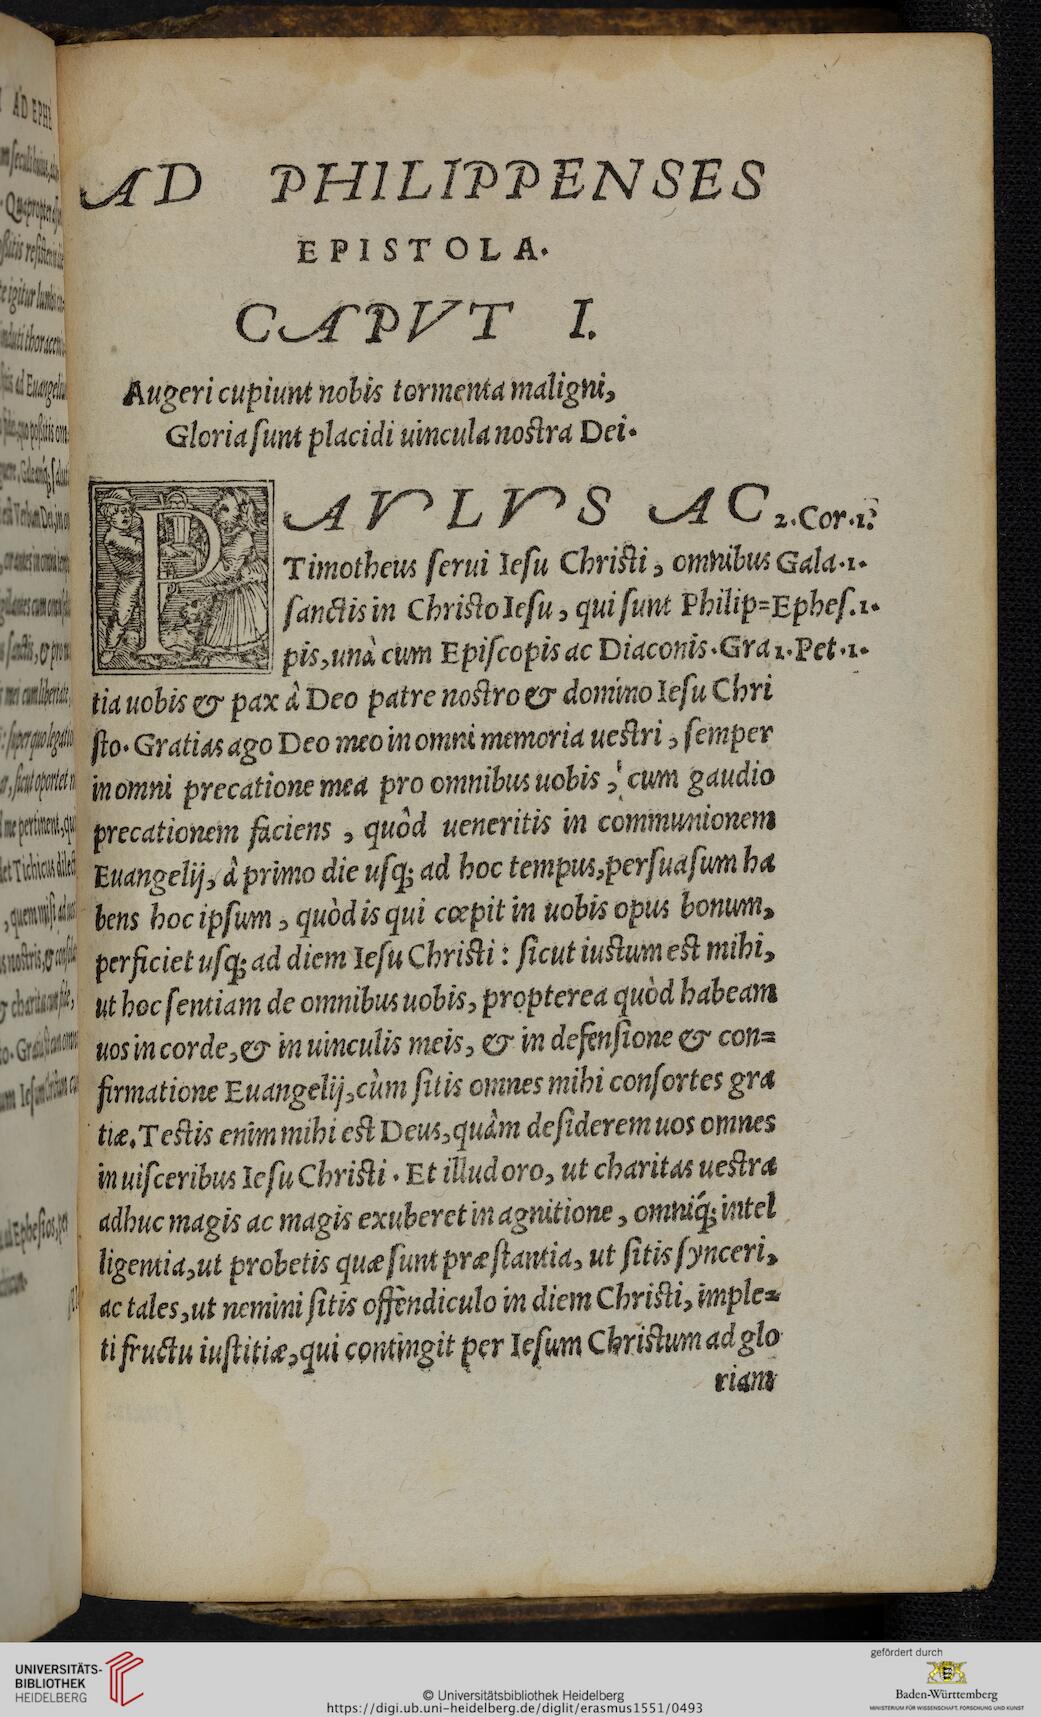 AD PHILIPPENSES
EPISTOLA.
CAPVT I.
Augeri cupiunt nobis tormenta maligni,
Gloria sunt placidi uincula nostra Dei.
PAVLVS AC
2. Cor. 1.
Timotheus serui Iesu Christi, omnibus
Gala. 1.
sanctis in Christo Iesu, qui sunt Philip=
Ephes. 1.
pis, unà cum Episcopis ac Diaconis. Gra
1. Pet. 1.
tia uobis & pax â Deo patre nostro & domino Iesu Chri
sto. Gratias ago Deo meo in omni memoria uestri, semper
in omni precatione mea pro omnibus uobis, cum gaudio
precationem faciens, quôd ueneritis in communionem
Euangelij, â primo die usq; ad hoc tempus, persuasum ha
bens hoc ipsum, quòd is qui cœpit in uobis opus bonum,
perficiet usq; ad diem Iesu Christi: sicut iustum est mihi,
ut hoc sentiam de omnibus uobis, propterea quòd habeam
uos in corde, & in uinculis meis, & in defensione & con=
firmatione Euangelij, cùm sitis omnes mihi consortes gra
tiæ. Testis enim mihi est Deus, quâm desiderem uos omnes
in uisceribus Iesu Christi. Et illud oro, ut charitas uestra
adhuc magis ac magis exuberet in agnitione, omniq́; intel
ligentia, ut probetis quæ sunt præstantia, ut sitis synceri,
ac tales, ut nemini sitis offendiculo in diem Christi, imple=
ti fructu iustitiæ, qui contingit per Iesum Christum ad glo
riam
UNIVERSITÄTS-
BIBLIOTHEK
HEIDELBERG
© Universitätsbibliothek Heidelberg
https://digi.ub.uni-heidelberg.de/diglit/erasmus1551/0493
gefördert durch
Baden-Württemberg
MINISTERIUM FÜR WISSENSCHAFT, FORSCHUNG UND KUNST